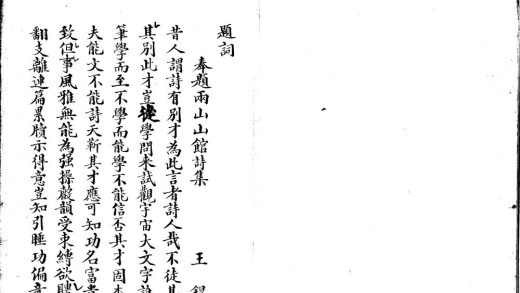 題詞
奉題兩山山館詩集　王
昔人謂詩有別才為此言者詩人哉不徒其
其別此才豈從學問來試觀宇宙大文字
筆學而至不學而能學不能信否其才固
夫能文不能詩天靳其才應可知功名富
致但事風雅無能為强操聲韻受束縛欲
翻支離連篇累牘示得意豈知引睡功偏